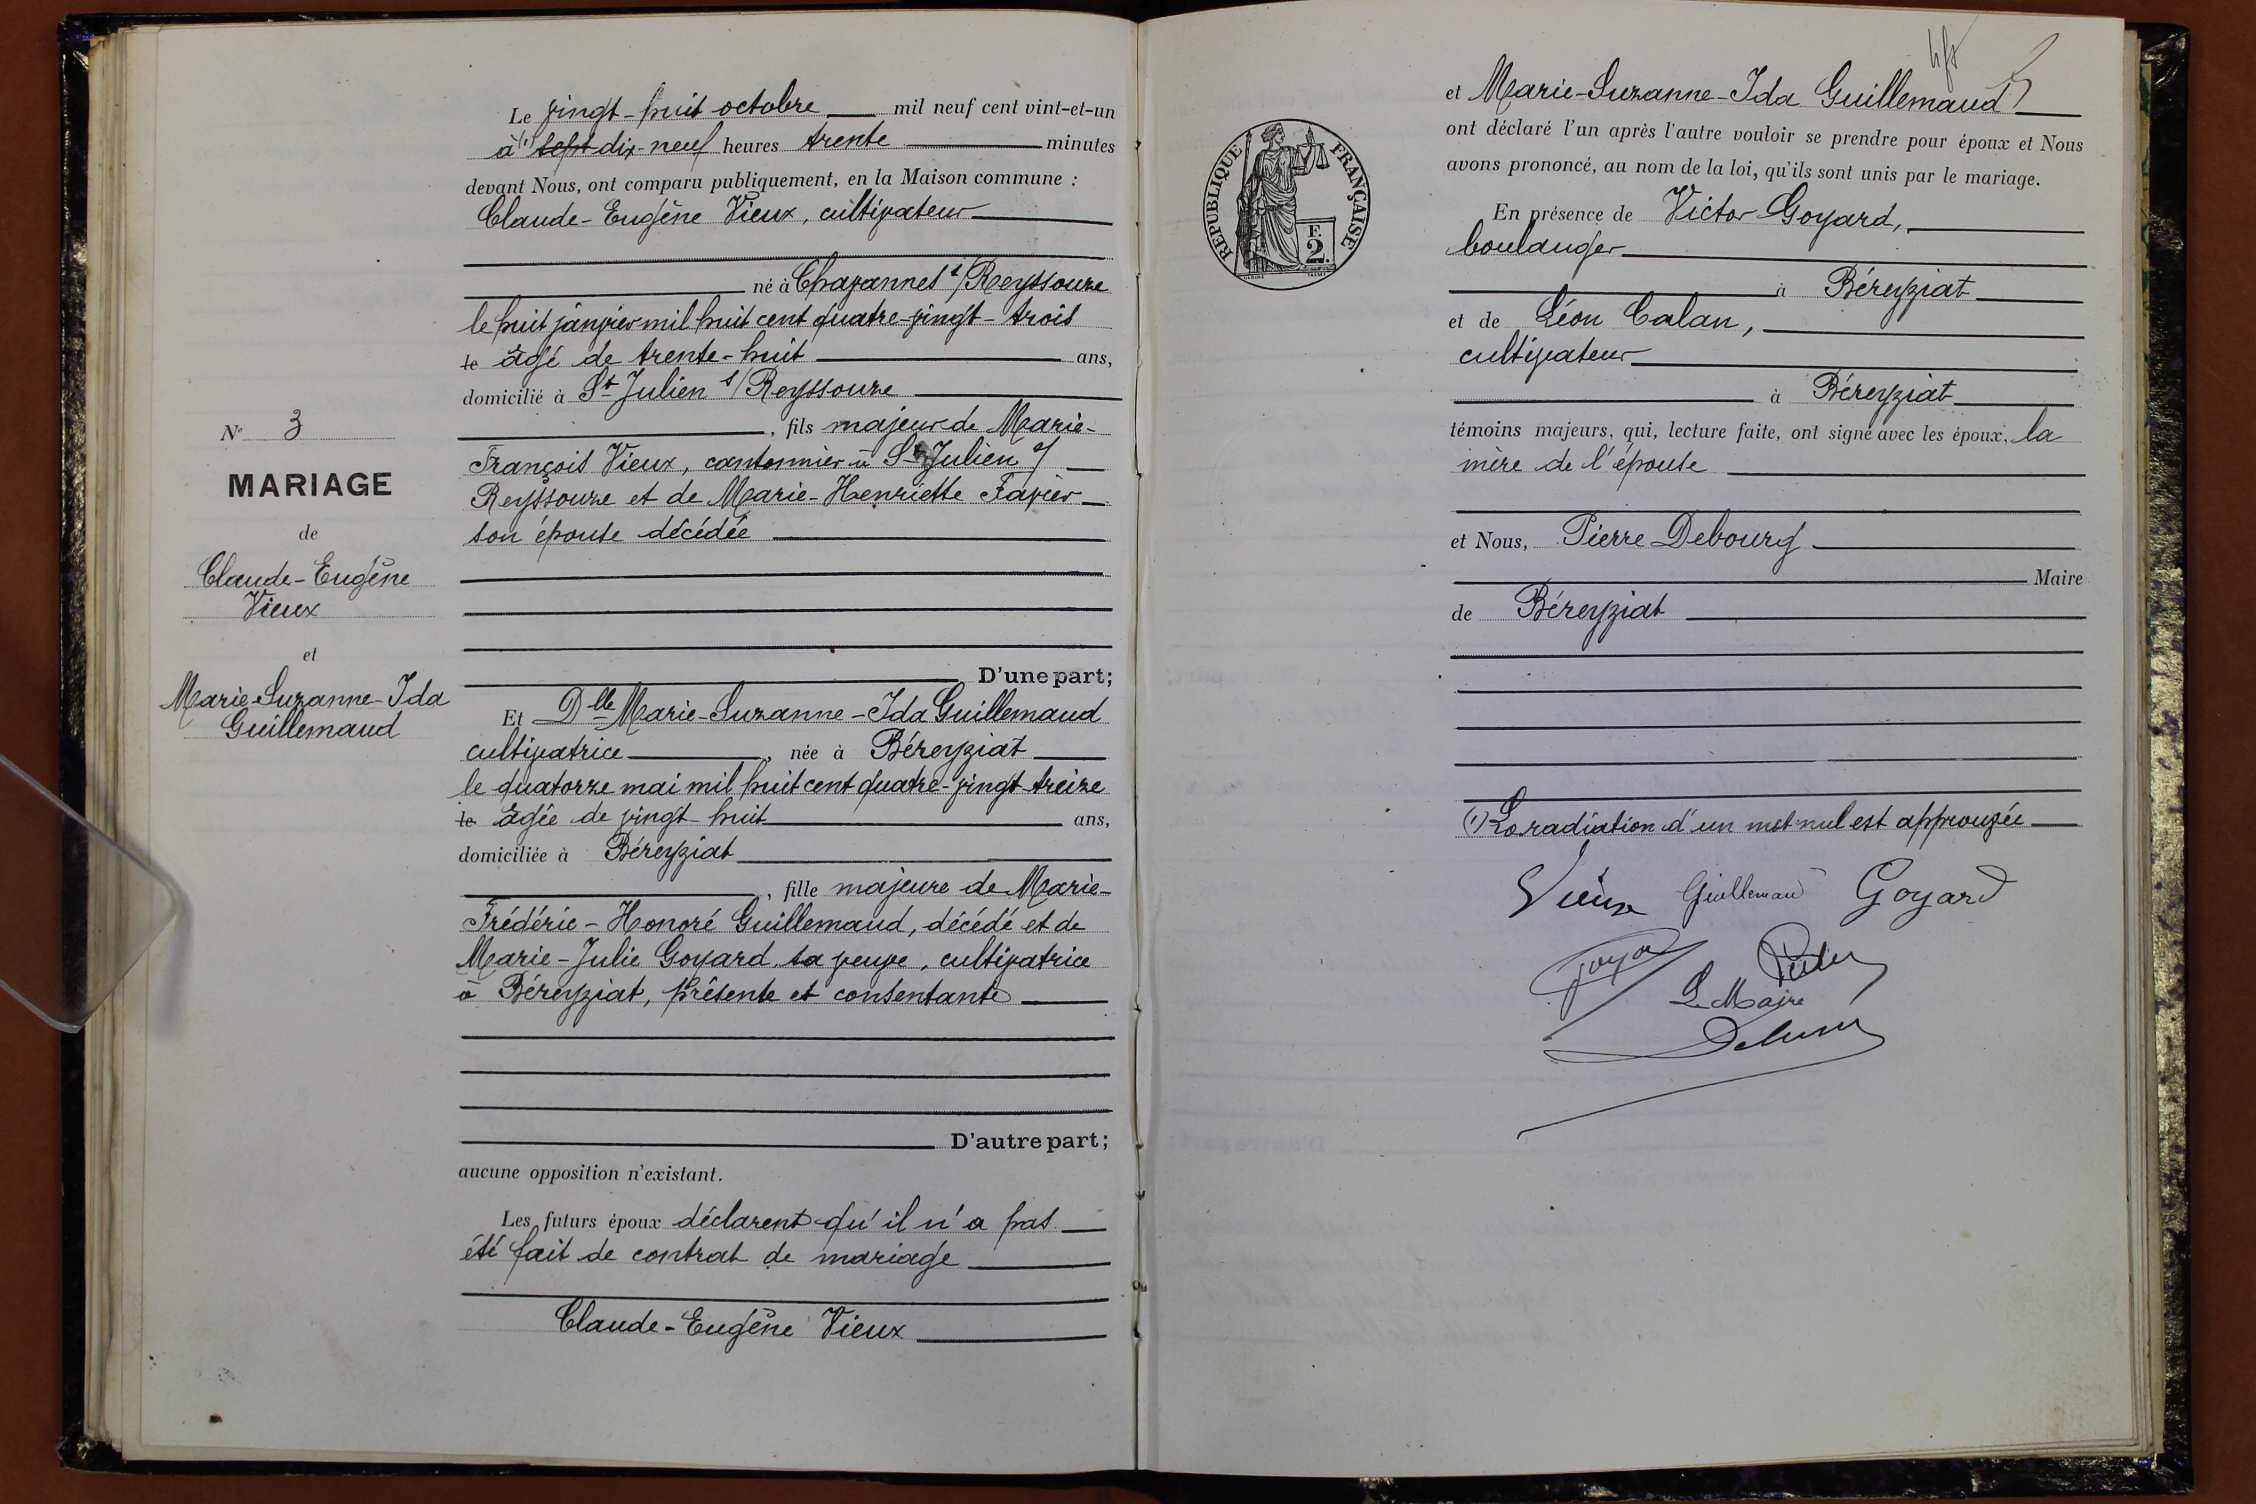 Le vingt-huit octobre mil neuf cent vint-et-un
à (1) sept dix-neuf heures trente minutes
devant Nous, ont comparu publiquement, en la Maison commune :
Claude-Eugène Vieux, cultivateur
né à Chavannes s/Reyssouze
le huit janvier mil huit cent quatre-vingt-trois
le âgé de trente-huit ans,
domicilié à St Julien s/Reyssouze
, fils majeur de Marie-
François Vieux, cantonnier à St Julien s/
Reyssouze et de Marie-Henriette Favier
son épouse décédée
D'une part;
Et Dlle Marie-Suzanne-Ida Guillemaud
cultivatrice, née à Béreyziat
le quatorze mai mil huit cent quatre-vingt-treize
le âgée de vingt-huit ans,
domiciliée à Béreyziat
, fille majeure de Marie-
Frédéric-Honoré Guillemaud, décédé et de
Marie-Julie Goyard sa veuve, cultivatrice
à Béreyziat, présente et consentante
D'autre part;
aucune opposition n'existant.
Les futurs époux déclarent qu'il n'a pas
été fait de contrat de mariage
Claude-Eugène Vieux
N° 3
MARIAGE
de
Claude-Eugène
Vieux
et
Marie-Suzanne-Ida
Guillemaud
RÉPUBLIQUE FRANÇAISE
F.
2.
et Marie-Suzanne-Ida Guillemaud
ont déclaré l'un après l'autre vouloir se prendre pour époux et Nous
avons prononcé, au nom de la loi, qu'ils sont unis par le mariage.
En présence de Victor Goyard,
boulanger
à Béreyziat
et de Léon Calan,
cultivateur
à Béreyziat
témoins majeurs, qui, lecture faite, ont signé avec les époux, la
mère de l'épouse
et Nous, Pierre Debourg
Maire
de Béreyziat
(1) La radiation d'un mot nul est approuvée
Vieux Guillemaud Goyard
Goyard
Le Maire